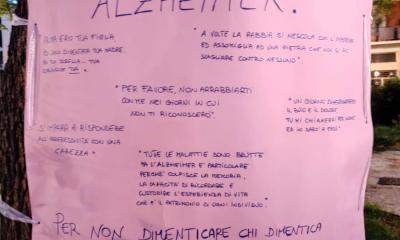 ALZHEIMER.
ERO TUA FIGLIA
TUA MADRE,
TUA SORELLA... TUA
TUA "
A VOLTE LA RABBIA SI MESCOLA CON L'AMORE
ED ASSOMIGLIA AD UNA PIETRA CHE NON SI PUÒ
SCAGLIARE CONTRO NESSUNO".
"PER FAVORE, NON ARRABBIARTI
CON ME NEI GIORNI IN CUI
NON TI RICONOSCERÒ".
"UN GIORNO
IL BUIO E IL
TU MI CHIAMERAI PER NOME
ED IO SARÒ A CASA"
SI IMPARA A RISPONDERE
ALL'AGGRESSIVITÀ CON UNA
CAREZZA"
"TUTTE LE MALATTIE SONO BRUTTE
MA L'ALZHEIMER È PARTICOLARE
PERCHÉ COLPISCE LA MEMORIA,
LA CAPACITÀ DI RICORDARE E
CUSTODIRE L'ESPERIENZA DI VITA
CHE È IL PATRIMONIO DI OGNI INDIVIDUO.
PER NON DIMENTICARE CHI DIMENTICA